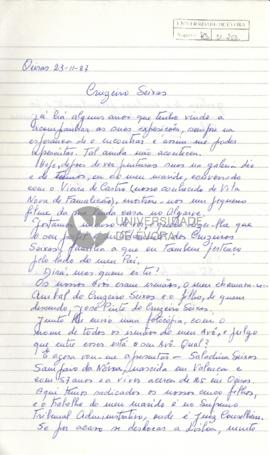 UNIVERSIDADE DE ÉVORA
Oeiras 23-11-87
Cruzeiro Seixas
Já há alguns anos que tenho vindo a
acompanhar as suas exposições, sempre na
esperança de o encontrar e assim me poder
apresentar. Tal ainda não aconteceu.
Hoje, depois de ver pinturas suas na galeria
e de eu ou do meu marido, conversando
com o Vieira de Castro (nosso conhecido de Vila
Nova de Famalicão), mostrou-nos um pequeno
filme da
UNIVERSIDADE
DE ÉVORA
Seixas, família a que eu também pertenço
pelo lado do meu Pai.
Dirá, mas quem és tu?
Os nossos Avós eram irmãos, o meu chamava-se
Aníbal do Cruzeiro Seixas e o filho, de quem
descendo, José Pinto do Cruzeiro Seixas.
Junto lhe envio uma fotocópia, com o
nome de todos os irmãos do meu Avô, e julgo
que entre esses está o seu Avô. Qual?
E agora vou-me apresentar - Seixas
Sampaio da Nóvoa, nascida em Valença e
com 57 anos e a viver acerca de 25 em Oeiras.
Aqui temos radicados os nossos cinco filhos,
e o trabalho do meu marido é no Supremo
Tribunal Administrativo, onde é Juiz Conselheiro.
Se por acaso se deslocar a Lisboa, muito